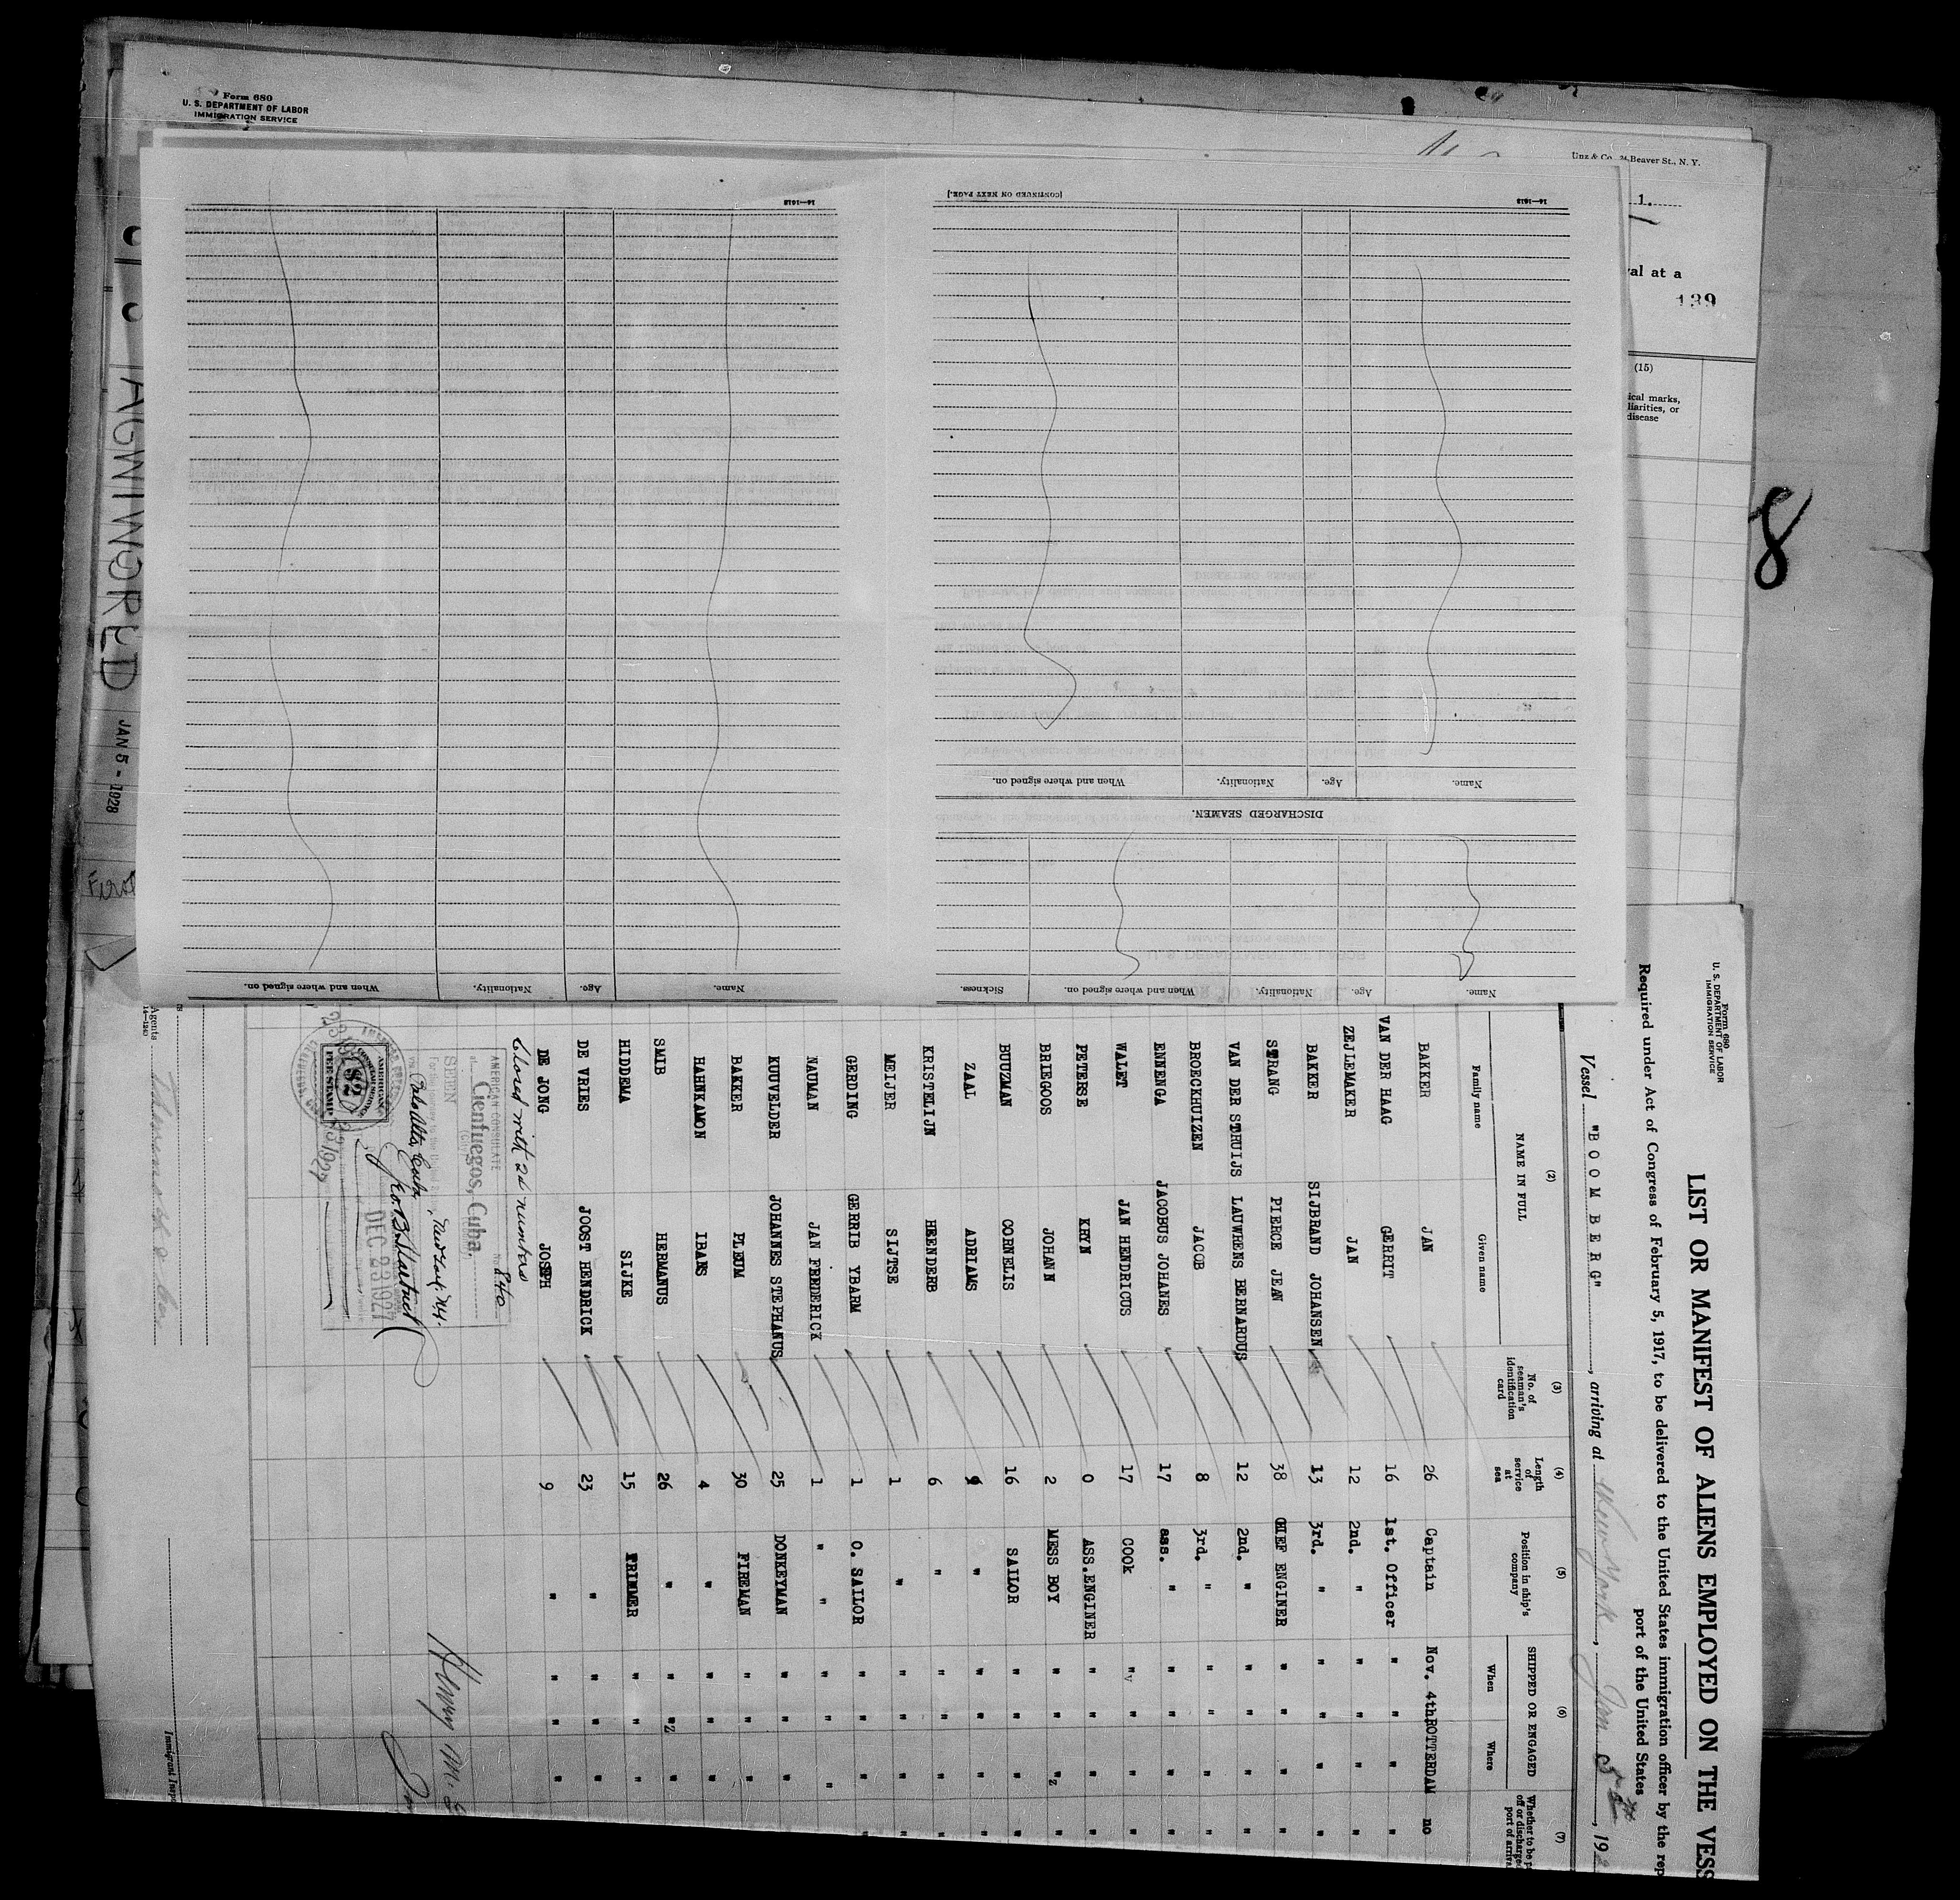 Form 680
U. S. DEPARTMENT OF LABOR
IMMIGRATION SERVICE
Unz & Co. 24 Beaver St., N. Y.
1.
val at a
139
(15)
ical marks,
liarities, or
disease
8
AGWIWORLD
JAN 5 - 1928
First
[CONTINUED ON NEXT PAGE.]
16—1618
16—1618
Name.
Age.
Nationality.
When and where signed on.
Sickness.
DISCHARGED SEAMEN.
Name.
Age.
Nationality.
When and where signed on.
Name.
Age.
Nationality.
When and where signed on.
Form 680
U. S. DEPARTMENT OF LABOR
IMMIGRATION SERVICE
LIST OR MANIFEST OF ALIENS EMPLOYED ON THE VESS
Required under Act of Congress of February 5, 1917, to be delivered to the United States immigration officer by the rep
port of the United States
Vessel "BOOMBERG", arriving at New York, Jan 5th, 192
(2) (3) (4) (5) (6) (7)
NAME IN FULL
Family name Given name
No. of seaman's identification card
Length of service at sea
Position in ship's company
SHIPPED OR ENGAGED
When Where
Whether to be p
off or discharge
port of arriva
BAKKER JAN 26 Captain Nov. 4th ROTTERDAM no
VAN DER HAAG GERRIT 16 1st. Officer " " " "
ZEJLEMAKER JAN 12 2nd. " " " " "
BAKKER SIJBRAND JOHANSEN 13 3rd. " " " " "
STRANG PIERCE JEAN 38 CHIEF ENGINER " " " "
VAN DER STHUIJS LAUWRENS BERNARDUS 12 2nd. " " " " "
BROECKHUIZEN JACOB 8 3rd. " " " " "
ENNENGA JACOBUS JOHANES 17 ass. " " " " "
WALET JAN HENDRICUS 17 COOk " " " "
PETERSE KRYN 0 ASS.ENGINER " " " "
BRIEGOOS JOHANN 2 MESS BOY " " " "
BUUZMAN CORNELIS 16 SAILOR " " " "
ZAAL ADRIAMS " " " " "
KRISTELIJN HEENDERB 6 " " " " "
MEIJER SIJTSE 1 " " " " "
GERDING GERRIB YBARM 1 O. SAILOR " " " "
NAUMAN JAN FREDERICK 1 " " " " "
KUUVELDER JOHANNES STEPHANUS 25 DONKEYMAN " " "
BAKER PLEUM 30 FIREMAN " " "
HAHNKAMON IBANS 4 " " " "
SMIB HERMANUS 26 " " " "
HIDDEMA SIJKE 15 TRIMMER " " "
DE VRIES JOOST HENDRICK 23 " " " "
DE JONG JOSEPH 9 " " " "
Closed with 24 numbers
AMERICAN CONSULATE
at Cienfuegos, Cuba.
No. 840
SEEN
Palo Alto, Cuba, New York, N.Y.
DEC 23 1927
AMERICAN
$2
FEE STAMP
Henry M.
Agents
14—1240
Immigrant Insp